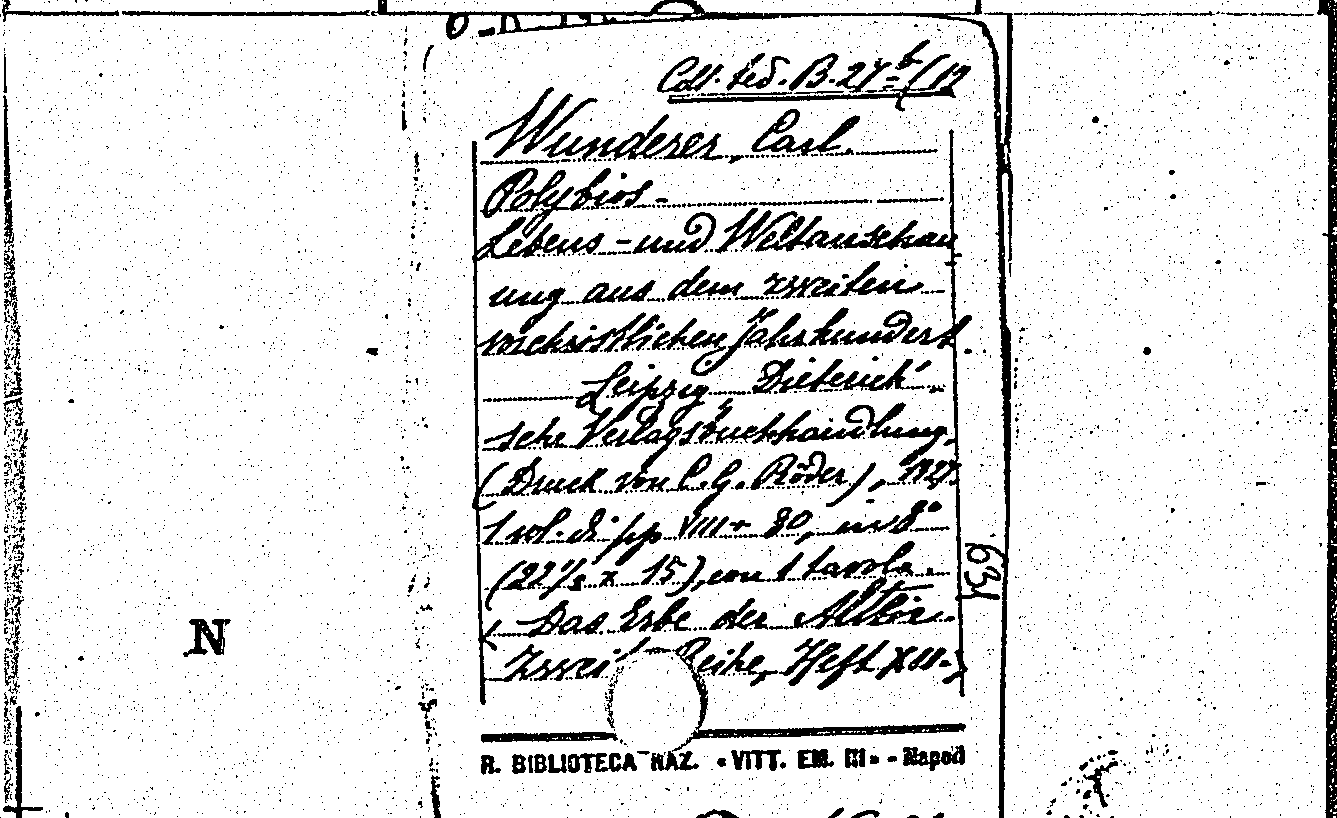 Coll. ted. B. 27 b (12
Wunderer, Carl.
Polybios-
Lebens-und Weltanschau
ung aus dem zweiten
vorchristlichen Jahrhundert.
Leipzig, Dieterich'
sche Verlagsbuchhandlung,
(Druck von C. G. Röder), 1927.
1 vol. di pp VIII + 80, in 8°
(22½ x 15), con 1 tavola.
(Das Erbe der Alten.
Zweite Reihe, Heft XII.)
631
N
R. BIBLIOTECA NAZ. «VITT. EM. III» - Napoli